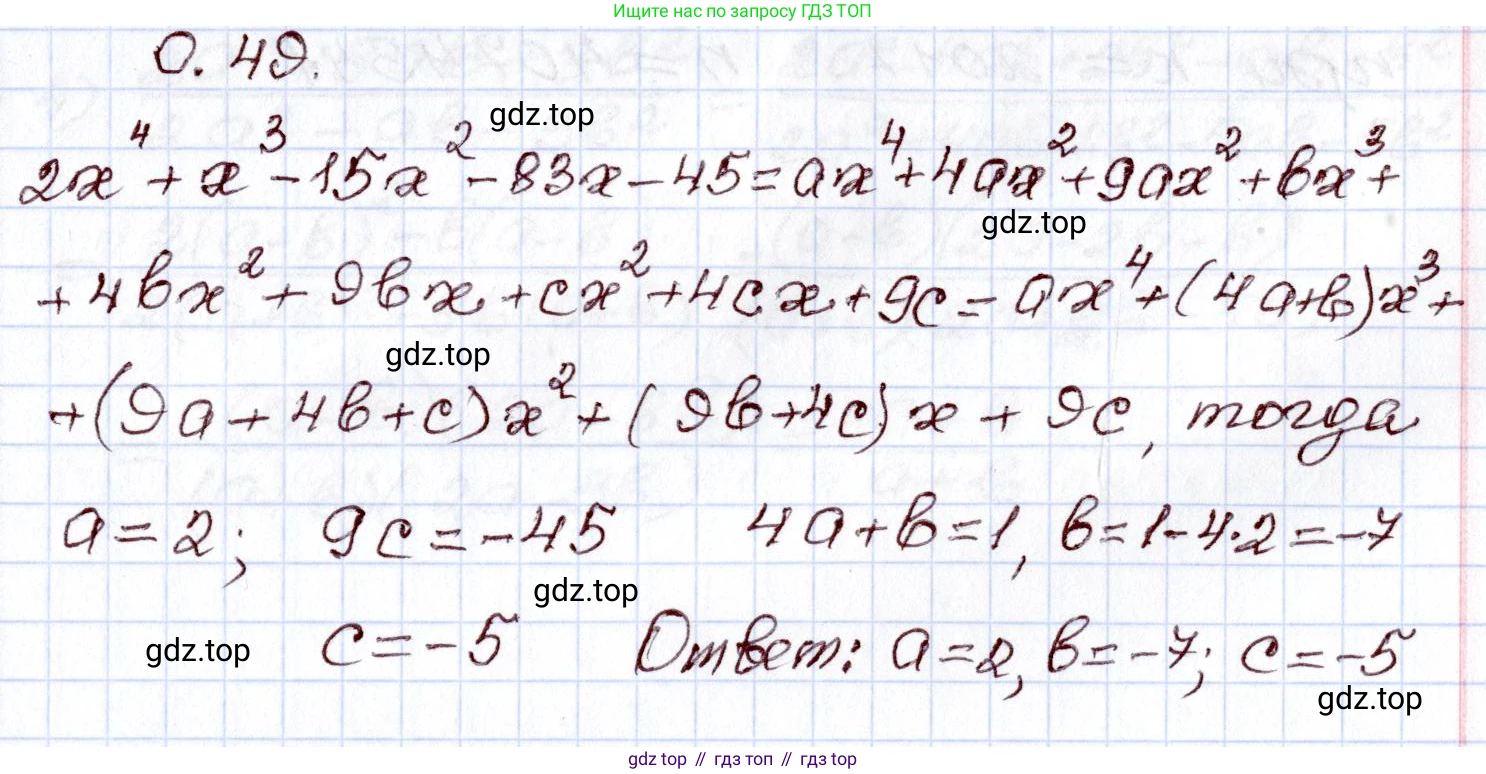 Ищите нас по запросу ГДЗ ТОП
0.49.
gdz.top
2x⁴ + x³ - 15x² - 83x - 45 = ax⁴ + 4ax² + 9ax² + bx³ +
gdz.top
+ 4bx² + 9bx + cx² + 4cx + 9c = ax⁴ + (4a+b)x³ +
gdz.top
+ (9a + 4b + c)x² + (9b + 4c)x + 9c, тогда
a = 2; 9c = -45 4a + b = 1, b = 1 - 4·2 = -7
gdz.top
gdz.top c = -5 Ответ: a = 2, b = -7; c = -5
gdz.top
gdz top // гдз топ // гдз top